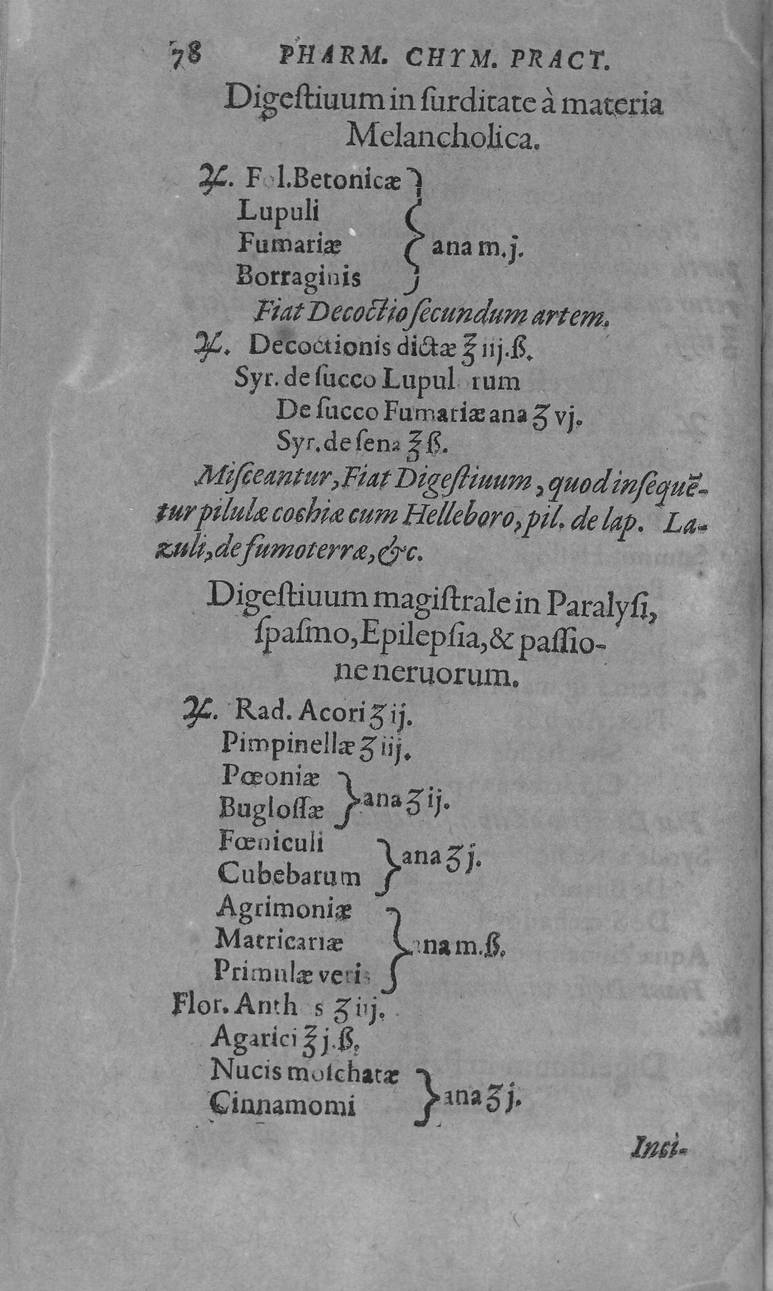 78 PHARM. CHYM. PRACT.
Digeſtiuum in ſurditate à materia
Melancholica.
♃. Fol. Betonicæ
Lupuli
Fumariæ
Borraginis
} ana m.j.
Fiat Decoctio ſecundum artem.
♃. Decoctionis dictæ ℥ iij.ß.
Syr. de ſucco Lupulorum
De ſucco Fumariæ ana ʒ vj.
Syr. de ſena ℥ ß.
Miſceantur, Fiat Digeſtiuum, quod inſequē-
tur pilulæ cochiæ cum Helleboro, pil. de lap. La-
zuli, de fumoterræ, &c.
Digeſtiuum magiſtrale in Paralyſi,
ſpaſmo, Epilepſia, & paſſio-
ne neruorum.
♃. Rad. Acori ʒ ij.
Pimpinellæ ʒ iij.
Pœoniæ
Bugloſſæ
} ana ʒ ij.
Fœniculi
Cubebarum
} ana ʒ j.
Agrimoniæ
Matricariæ
Primulæ veris
} ana m.ß.
Flor. Anthos ʒ iij.
Agarici ℥ j.ß.
Nucis moſchatæ
Cinnamomi
} ana ʒ j.
Inci-